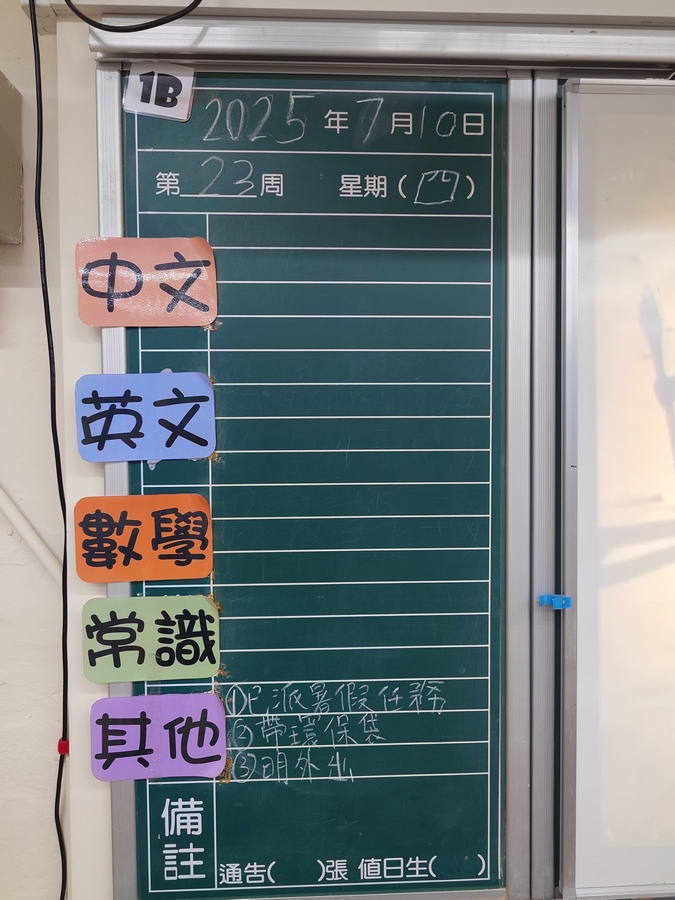 1B
2025年7月10日
第23周 星期(四)
中文
英文
數學
常識
其他
①已派暑假任務
②帶環保袋
③明外出
備註
通告( )張 值日生( )